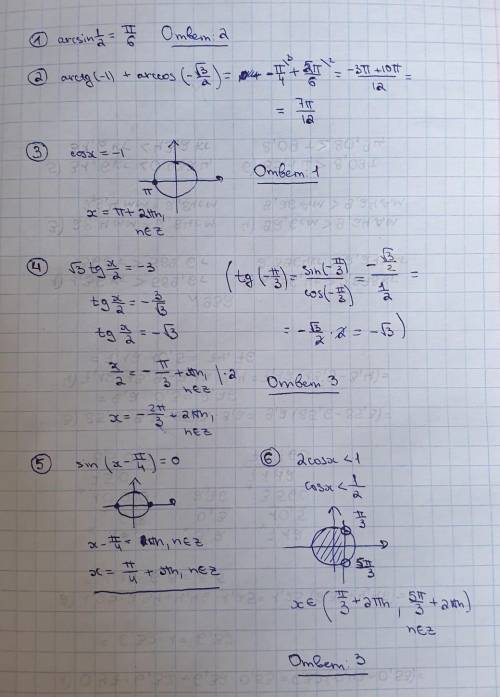 ① arcsin 1/2 = π/6 Ответ: 2
② arctg(-1) + arccos(-√3/2) = -π/4 \3 + 5π/6 \2 = (-3π+10π)/12 =
= 7π/12
③ cosx = -1
π
Ответ: 1
x = π + 2πn,
n∈Z
④ √3 tg x/2 = -3
tg x/2 = -3/√3
tg x/2 = -√3
x/2 = -π/3 + πn, | ·2
n∈Z
x = -2π/3 + 2πn,
n∈Z
(tg(-π/3) = sin(-π/3)/cos(-π/3) = (-√3/2)/(1/2) =
= -√3/2 · 2 = -√3)
Ответ: 3
⑤ sin(x - π/4) = 0
x - π/4 = πn, n∈Z
x = π/4 + πn, n∈Z
⑥ 2cosx < 1
cosx < 1/2
π/3
5π/3
x∈(π/3 + 2πn, 5π/3 + 2πn)
n∈Z
Ответ: 3